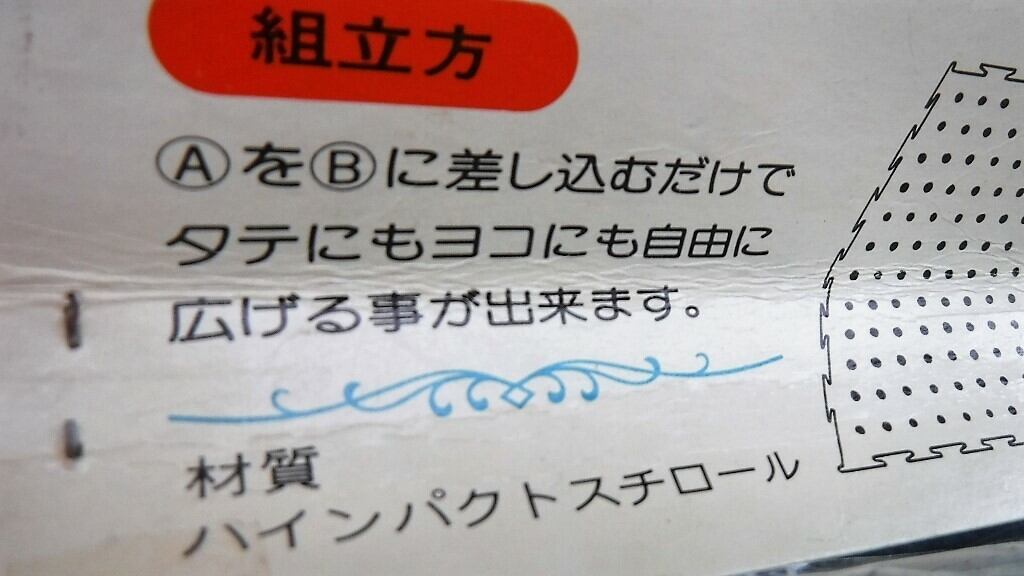 組立方
ⒶをⒷに差し込むだけで
タテにもヨコにも自由に
広げる事が出来ます。
材質
ハインパクトスチロール